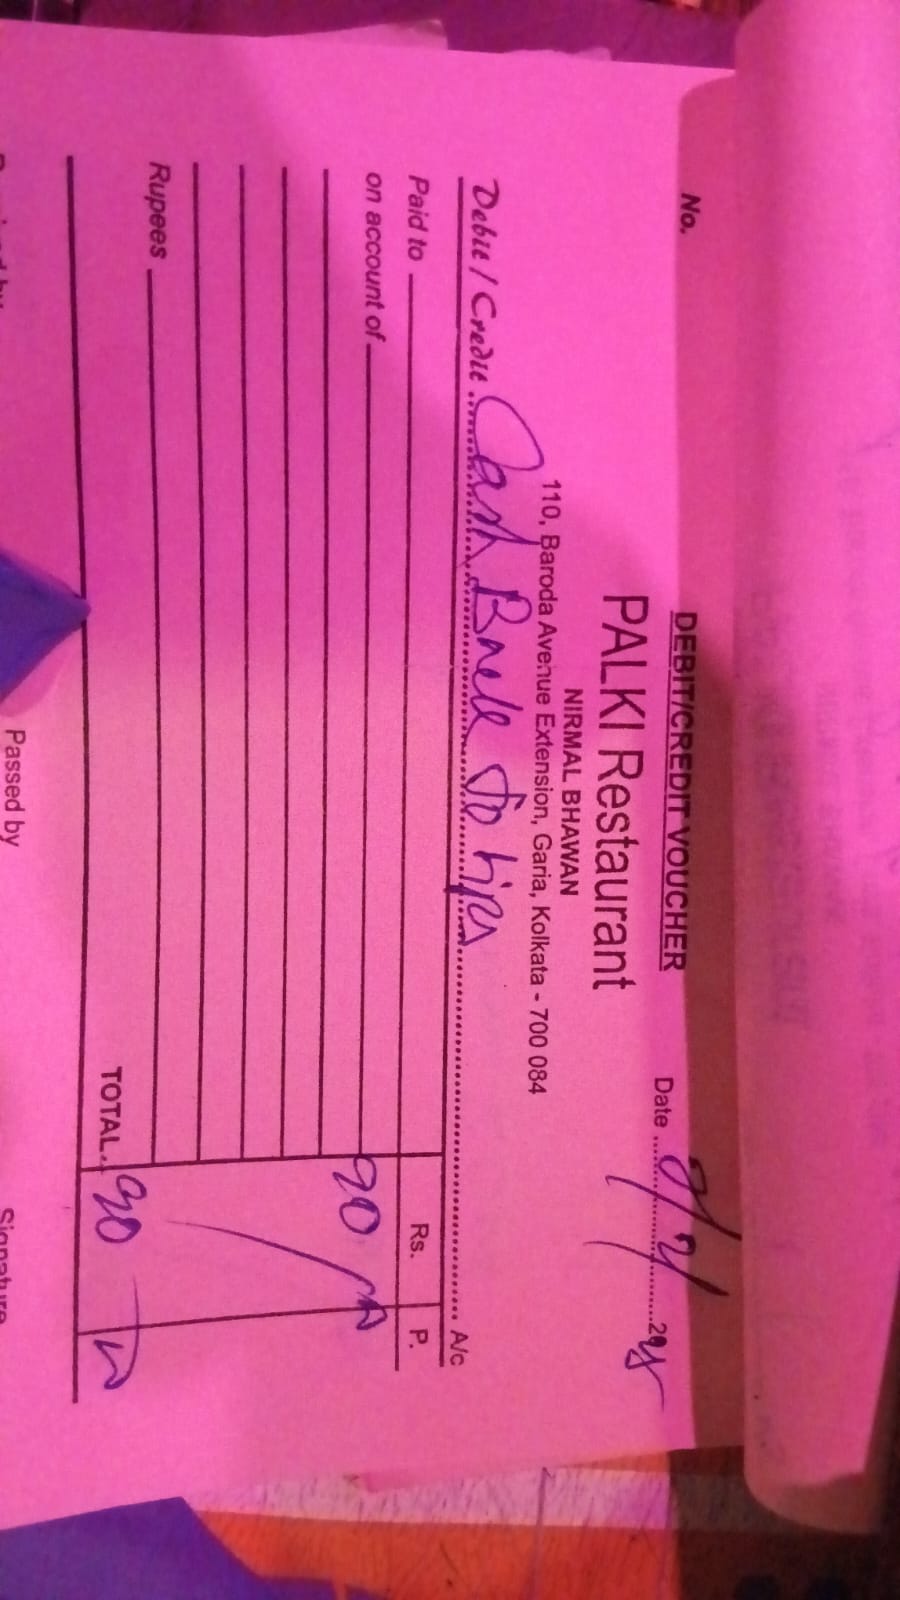 DEBIT/CREDIT VOUCHER
No.
Date
PALKI Restaurant
NIRMAL BHAWAN
110, Baroda Avenue Extension, Garia, Kolkata - 700 084
Debit / Credit Cash Back To tips A/c
Paid to Rs. P.
on account of 90
Rupees
TOTAL 90
Passed by
Signature